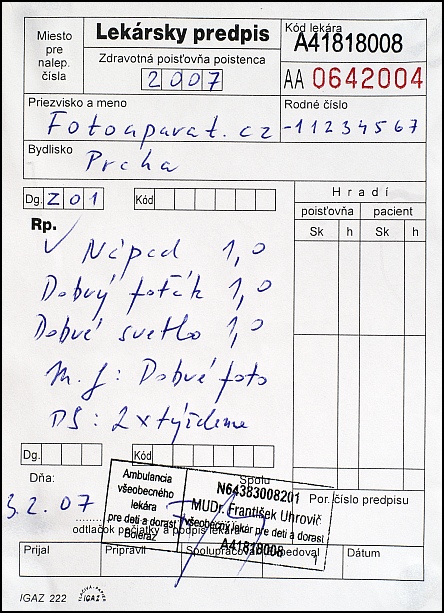 Miesto pre nalep. čísla
Lekársky predpis
Zdravotná poisťovňa poistenca
2007
Kód lekára
A41818008
AA 0642004
Priezvisko a meno
Rodné číslo
Fotoaparat.cz
-11234567
Bydlisko
Prcha
Dg. Z01
Kód
Hradí
poisťovňa pacient
Sk h Sk h
Rp.
✓ Nápad 1,0
Dobrý foťák 1,0
Dobré svetlo 1,0
M.f: Dobré foto
DS: 2x týždenne
Dg.
Kód
Dňa:
3.2.07
Spolu
Por. číslo predpisu
Ambulancia
všeobecného
lekára
pre deti a dorast
Boleráz
N64383008201
MUDr. František Uhrovič
všeobecný lekár pre deti a dorast
A41818008
1
odtlačok pečiatky a podpis lekára
Prijal
Pripravil
Spolupracoval
Dátum
IGAZ 222
IGAZ